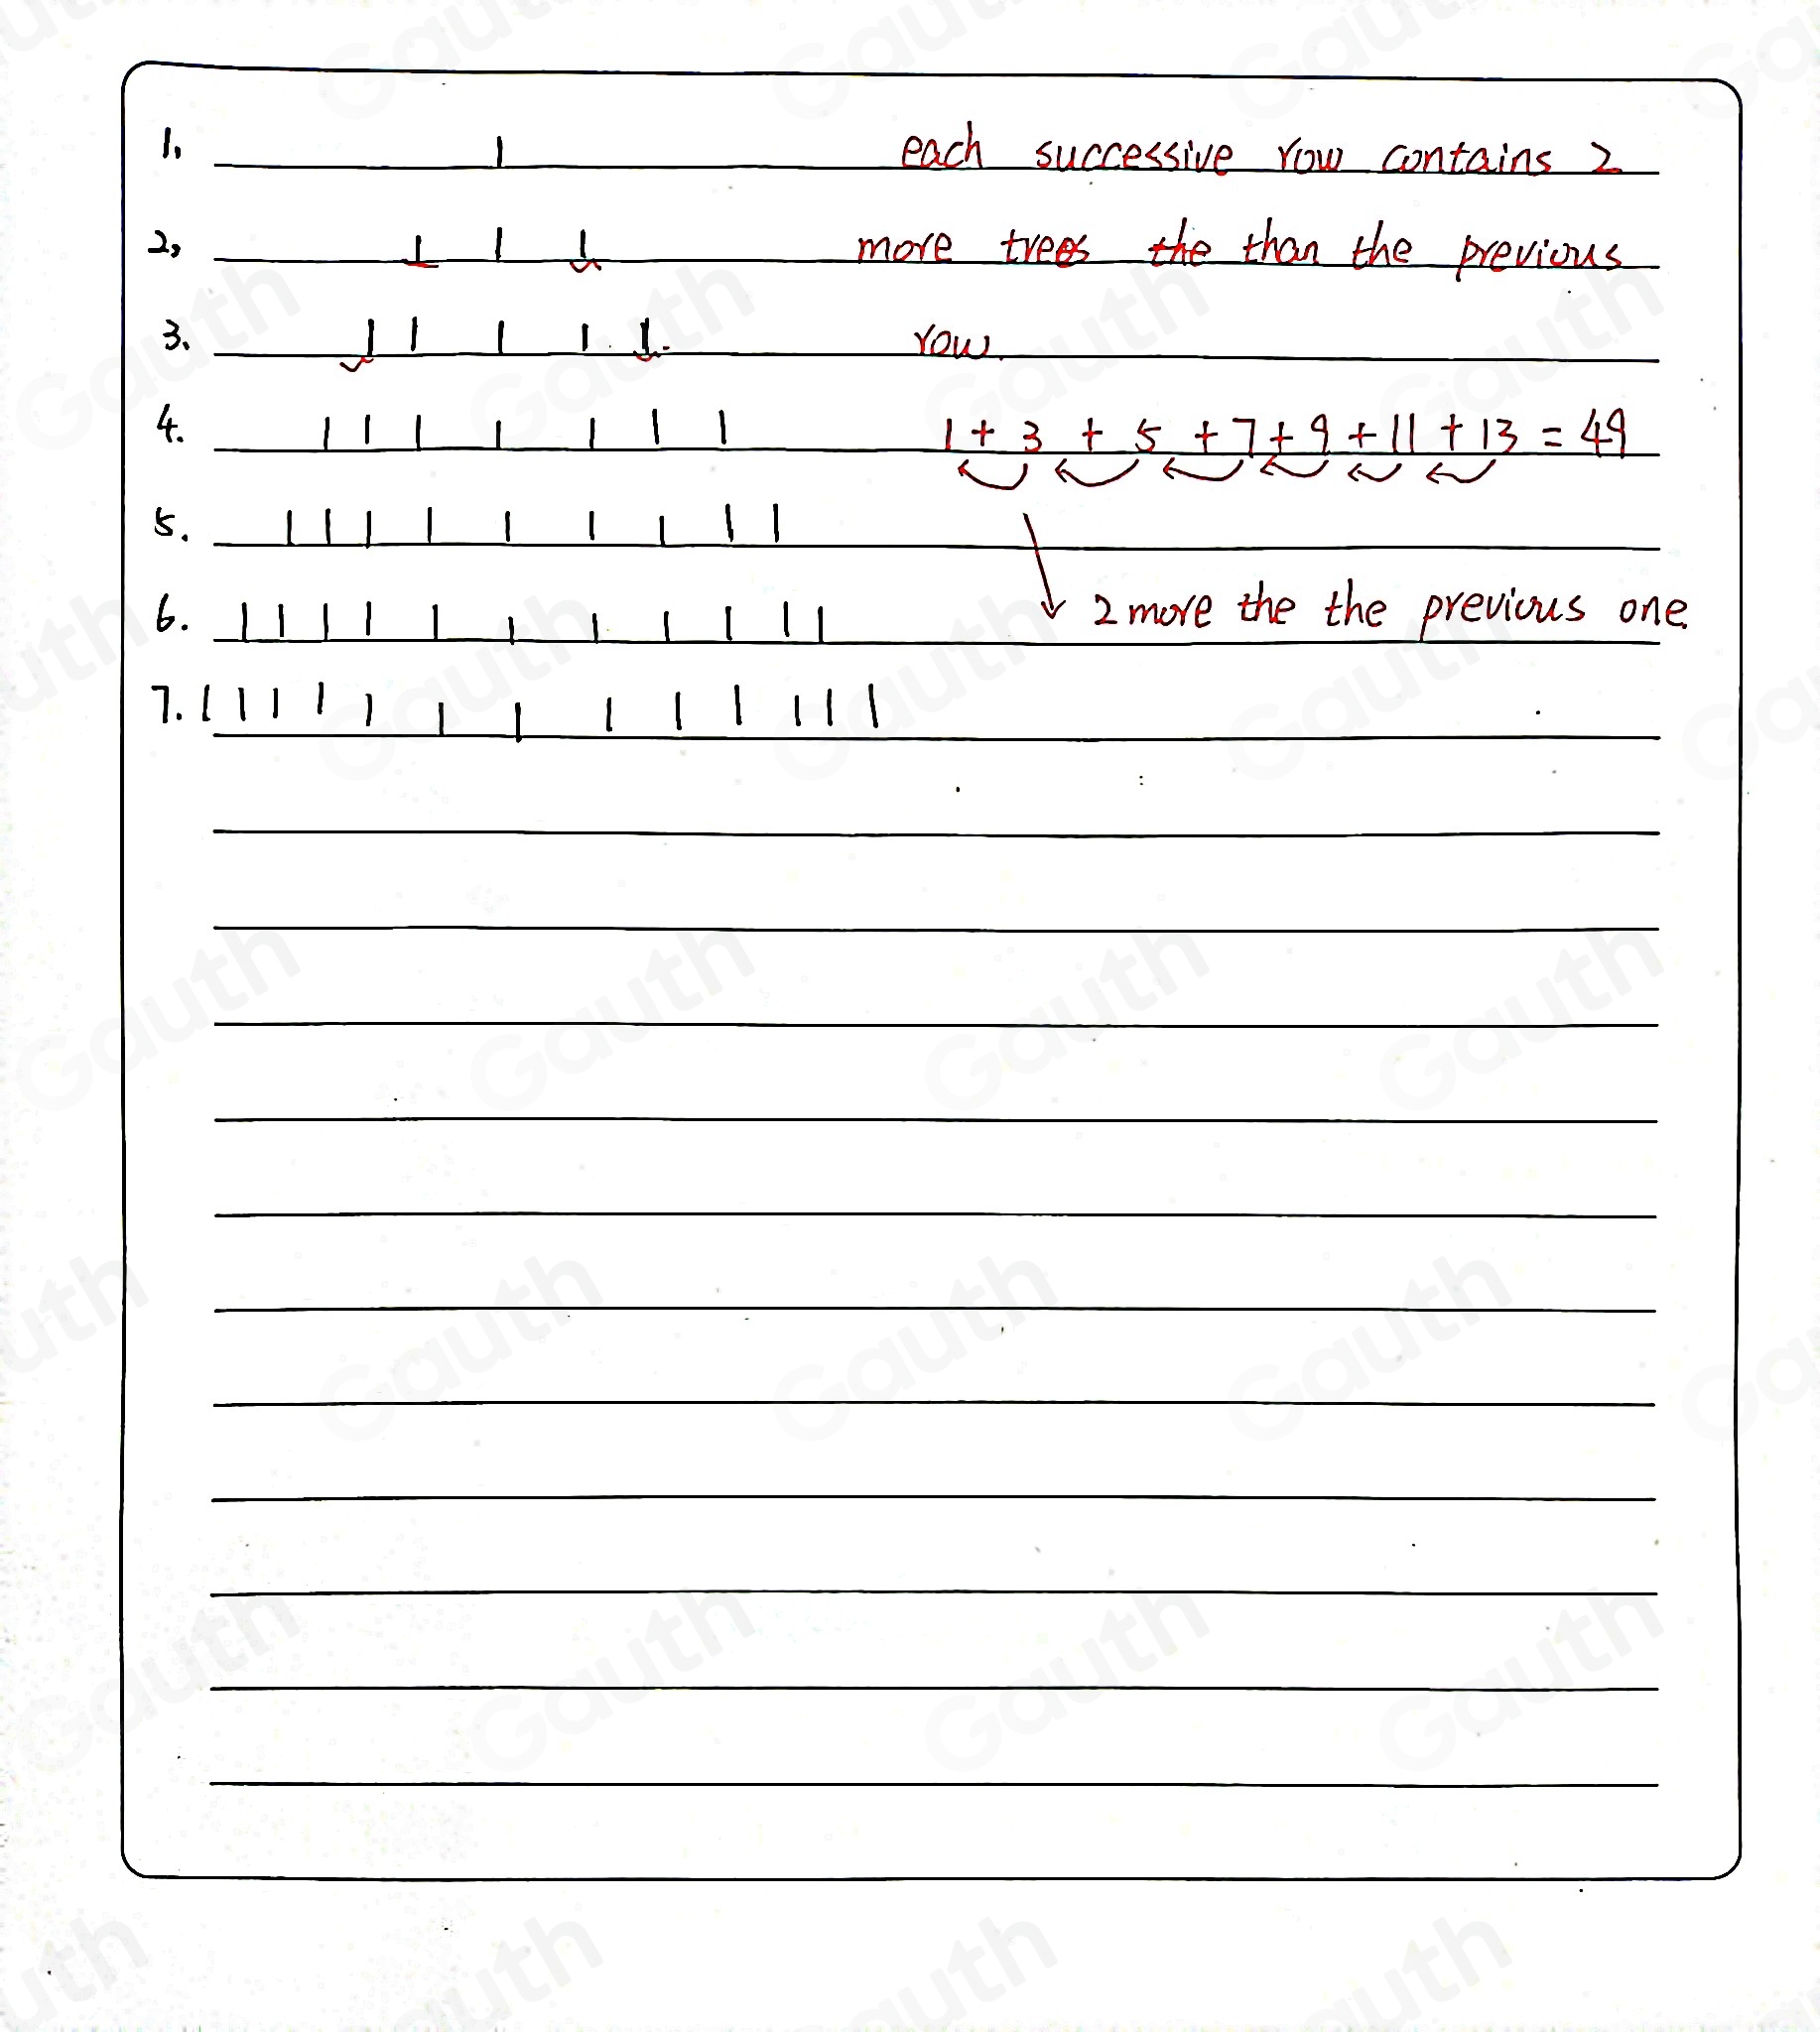 1. each successive row contains 2
2, more trees the than the previous
3. row.
4. 1 + 3 + 5 + 7 + 9 + 11 + 13 = 49
5.
6. 2 more the the previous one.
7.
Gauth